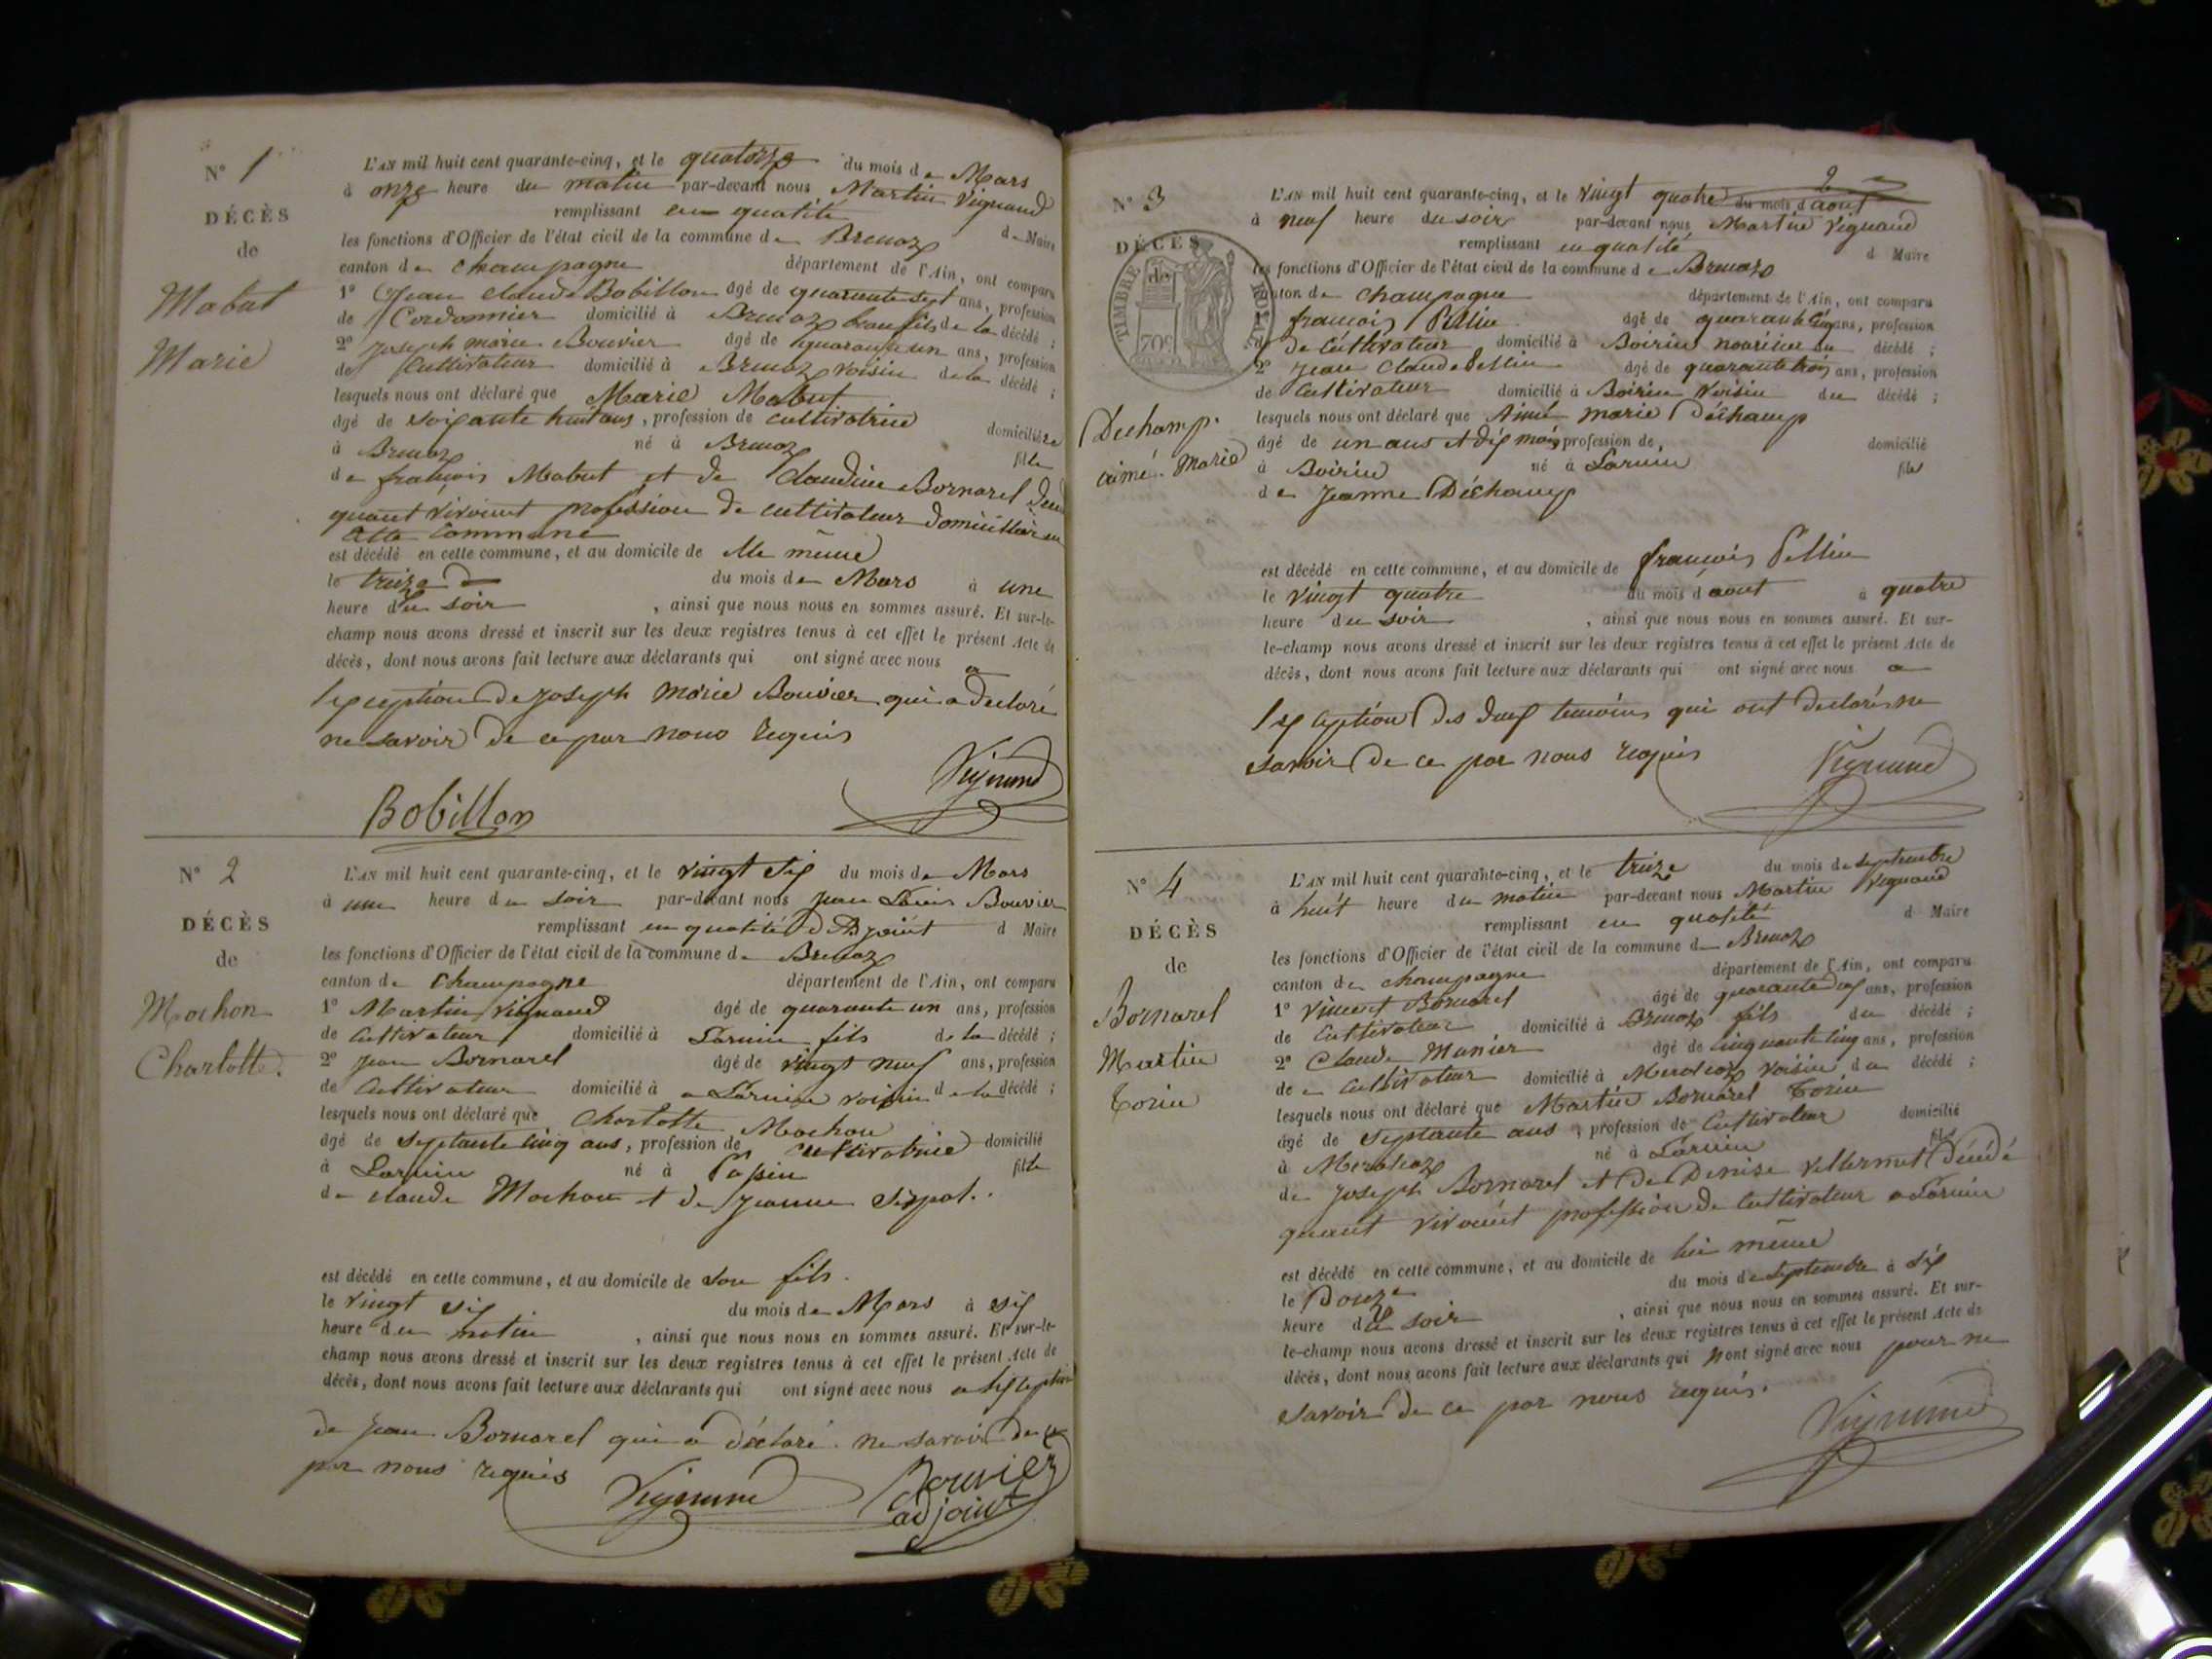 N° 1
DÉCÈS
de
Mabut
Marie
L'AN mil huit cent quarante-cinq, et le quatorze du mois de Mars
à onze heure du matin par-devant nous Martin Vignand
remplissant en qualité de Maire
les fonctions d'Officier de l'état civil de la commune de Brenaz
canton de Champagne département de l'Ain, ont comparu
1° Jean Claude Bobillon âgé de quarante sept ans, profession
de Cordonnier domicilié à Brenaz beau fils de la décédé ;
2° Joseph marie Bouvier âgé de quarante un ans, profession
de Cultivateur domicilié à Brenaz voisin de la décédé ;
lesquels nous ont déclaré que Marie Mabut
âgé de soixante huit ans, profession de cultivatrice domiciliée
à Brenaz né à Brenaz fille
de francois Mabut et de Claudine Bornarel
quant vivoient profession de cultivateur en
cette Commune
est décédé en cette commune, et au domicile de elle même
le treize du mois de Mars à une
heure du soir , ainsi que nous nous en sommes assuré. Et sur-le-
champ nous avons dressé et inscrit sur les deux registres tenus à cet effet le présent Acte de
décès, dont nous avons fait lecture aux déclarants qui ont signé avec nous a
lexception de Joseph Marie Bouvier qui a declaré
ne savoir de ce par nous requis
Vignand
Bobillon
N° 2
DÉCÈS
de
Mochon
Charlotte.
L'AN mil huit cent quarante-cinq, et le vingt six du mois de Mars
à une heure du soir par-devant nous Jean Louis Bouvier
remplissant en qualité d'Adjoint d Maire
les fonctions d'Officier de l'état civil de la commune de Brenaz
canton de Champagne département de l'Ain, ont comparu
1° Martin Vignand âgé de quarante un ans, profession
de Cultivateur domicilié à Larnin fils de la décédé ;
2° Jean Bornarel âgé de vingt neuf ans, profession
de Cultivateur domicilié à a Larnin voisin de la décédé ;
lesquels nous ont déclaré que Charlotte Mochon
âgé de septante cinq ans, profession de cultivatrice domicilié
à Larnin né à Passin fille
de claude Mochon et de Jeanne
est décédé en cette commune, et au domicile de son fils.
le vingt six du mois de Mars à six
heure du matin , ainsi que nous nous en sommes assuré. Et sur-le-
champ nous avons dressé et inscrit sur les deux registres tenus à cet effet le présent Acte de
décès, dont nous avons fait lecture aux déclarants qui ont signé avec nous a lexception
de Jean Bornarel qui a déclaré ne savoir de ce
par nous requis
Vignand
Bouvier
adjoint
2
N° 3
DÉCÈS
de
TIMBRE ROYAL
70c
Dechamp.
aimé. Marie
L'AN mil huit cent quarante-cinq, et le vingt quatre du mois d aout
à neuf heure du soir par-devant nous Martin Vignand
remplissant en qualité d Maire
les fonctions d'Officier de l'état civil de la commune de Brenaz
canton de Champagne département de l'Ain, ont comparu
1° francois Pellin âgé de quarante cinq ans, profession
de Cultivateur domicilié à Boirin nouricier du décédé ;
2° Jean Claude Pellin âgé de quarante trois ans, profession
de Cultivateur domicilié à Boirin Voisin du décédé ;
lesquels nous ont déclaré que Aimé marie Déchamp
âgé de un ans et dix mois profession de, domicilié
à Boirin né à Larnin fils
de Jeanne Déchamp
est décédé en cette commune, et au domicile de francois Pellin
le vingt quatre du mois d aout à quatre
heure du soir , ainsi que nous nous en sommes assuré. Et sur-
le-champ nous avons dressé et inscrit sur les deux registres tenus à cet effet le présent Acte de
décès, dont nous avons fait lecture aux déclarants qui ont signé avec nous a
lexception des deux temoins qui ont declarés ne
savoir de ce par nous requis
Vignand
N° 4
DÉCÈS
de
Bornarel
Martin
Torin
L'AN mil huit cent quarante-cinq, et le treize du mois de septembre
à huit heure du matin par-devant nous Martin Vignand
remplissant en qualité d Maire
les fonctions d'Officier de l'état civil de la commune de Brenaz
canton de champagne département de l'Ain, ont comparu
1° Vincent Bornarel âgé de quarante dix ans, profession
de Cultivateur domicilié à Brenaz fils du décédé ;
2° Claude Munier âgé de cinquante cinq ans, profession
de Cultivateur domicilié à Meraleaz voisin du décédé ;
lesquels nous ont déclaré que Martin Bornarel Torin
âgé de septante ans, profession de Cultivateur domicilié
à Meraleaz né à Larnin fils
de Joseph Bornarel et de Denise Vuillermet décédé
quant vivoient profession de Cultivateur a Larnin
est décédé en cette commune, et au domicile de lui même
le Douze du mois de Septembre à six
heure du soir , ainsi que nous nous en sommes assuré. Et sur-
le-champ nous avons dressé et inscrit sur les deux registres tenus à cet effet le présent Acte de
décès, dont nous avons fait lecture aux déclarants qui nont signé avec nous pour ne
savoir de ce par nous requis.
Vignand